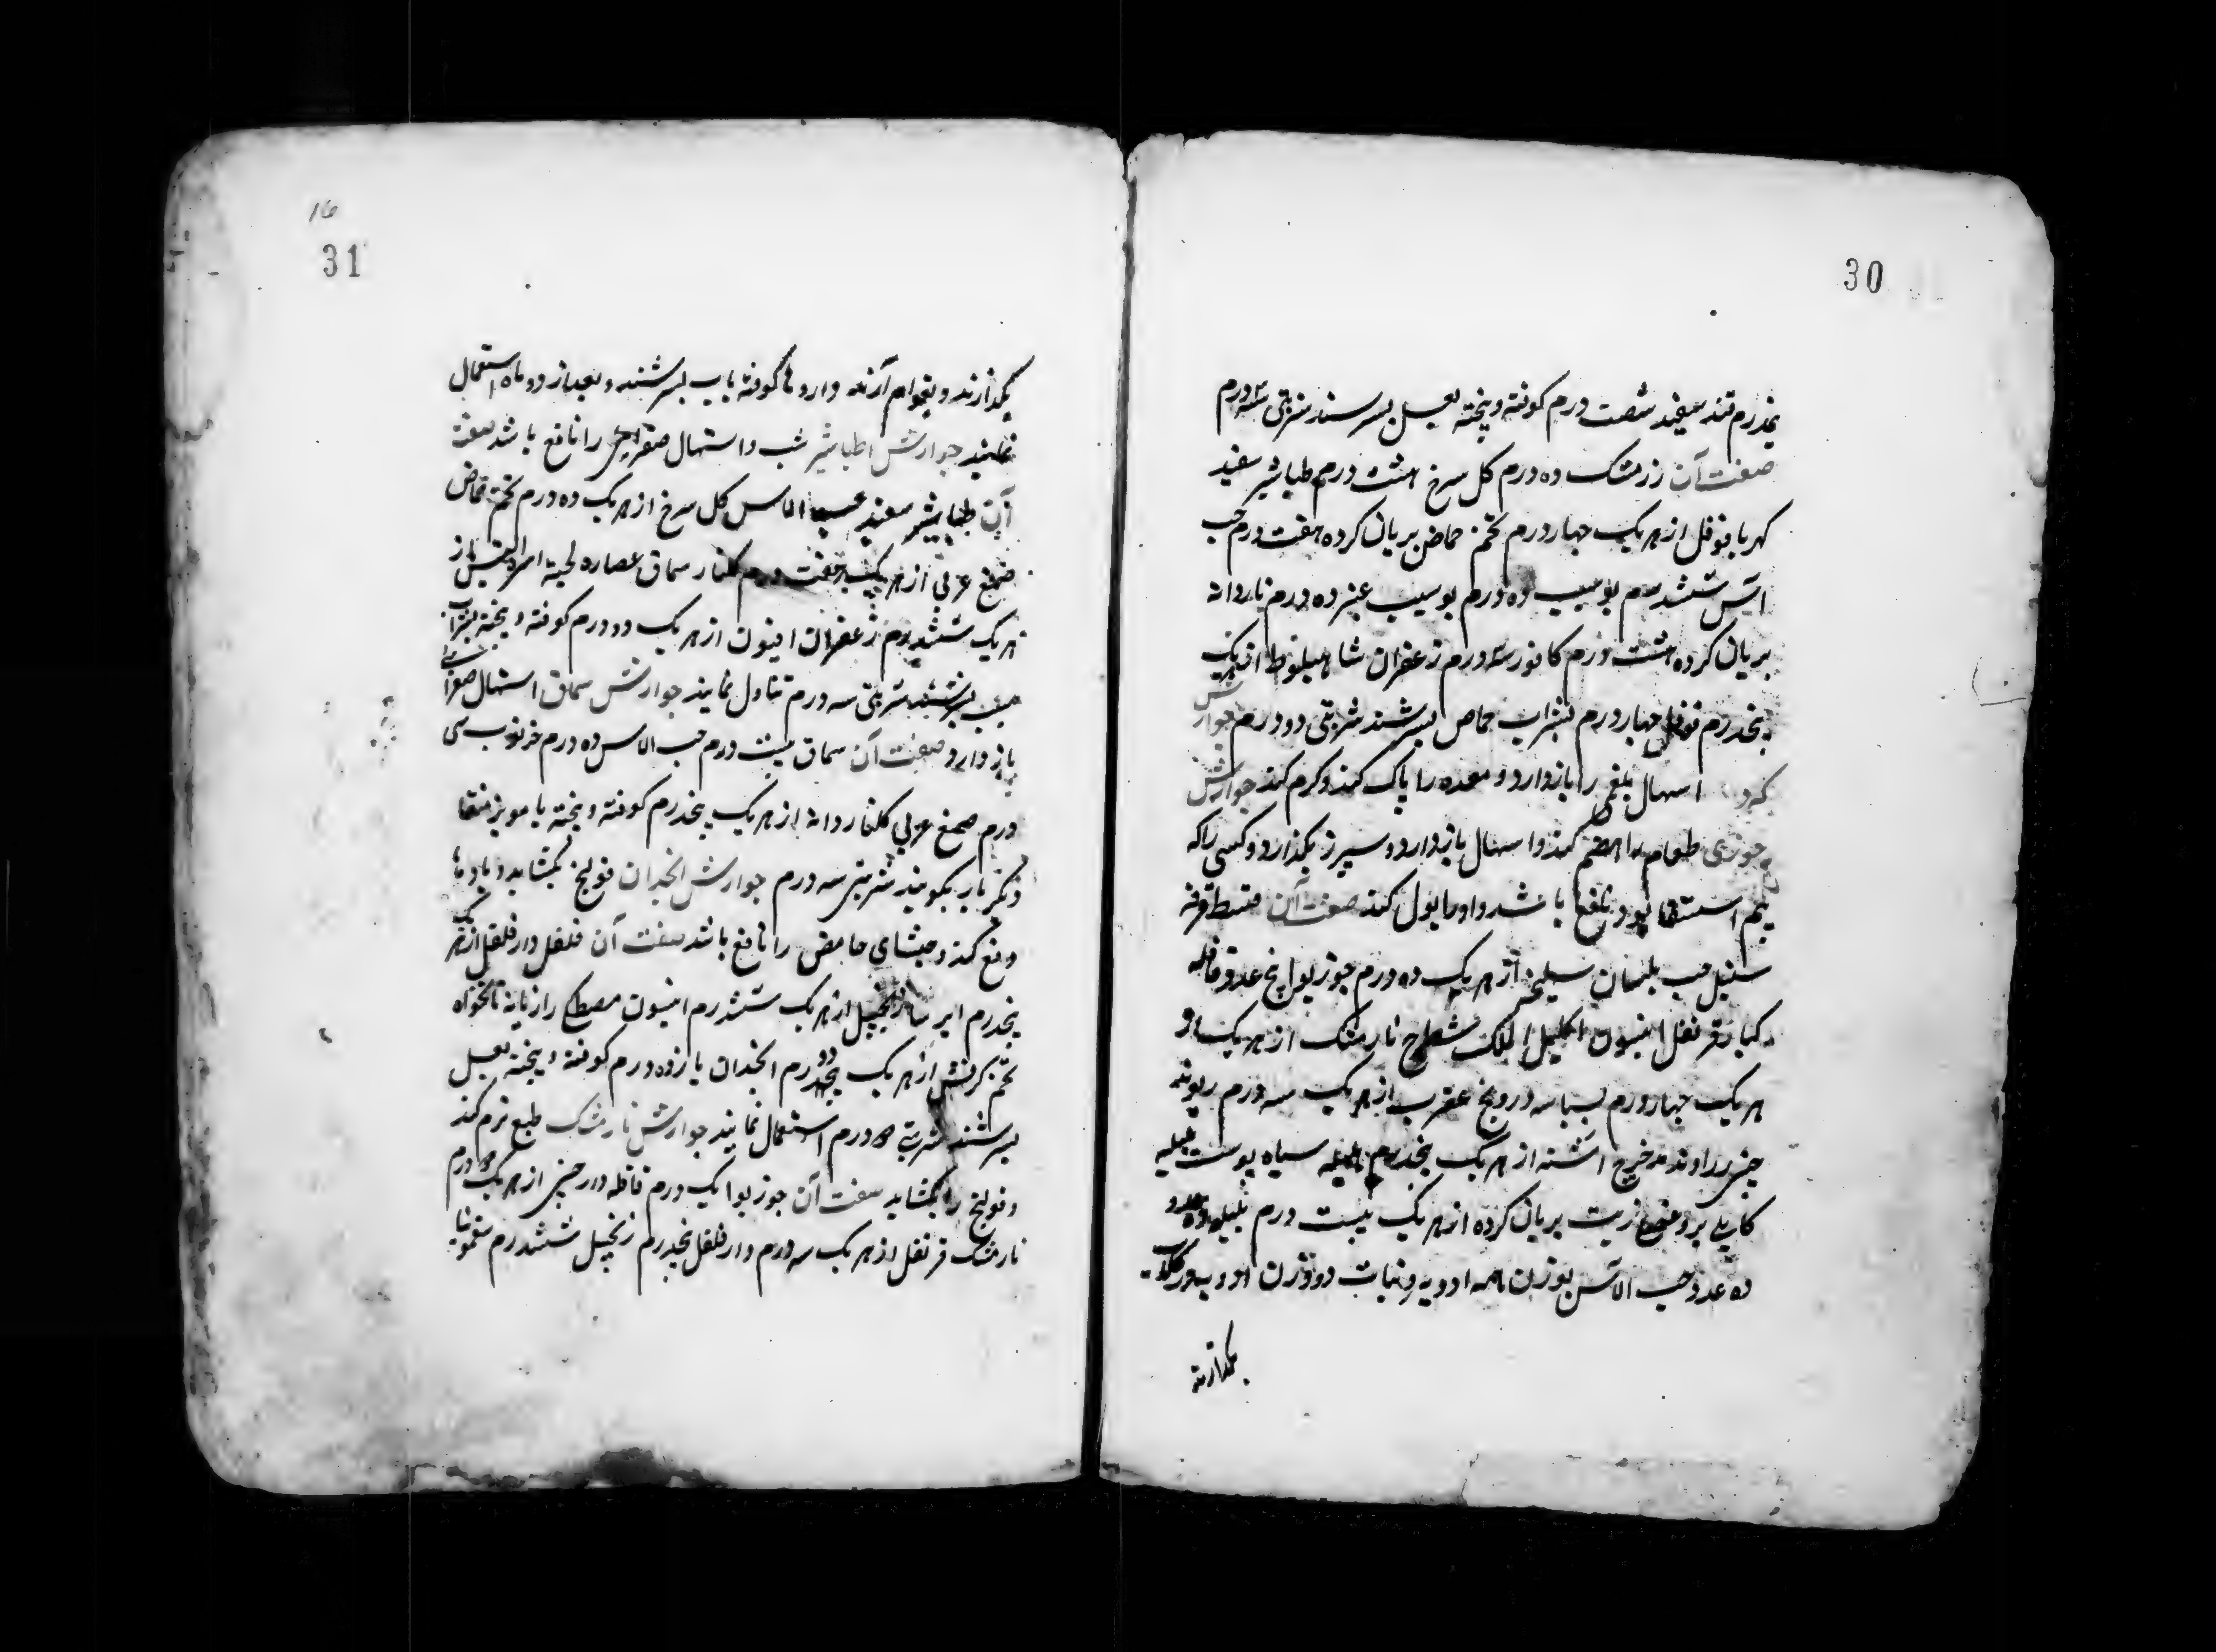 30
پنجدرم قند سفید شصت درم کوفته و پخته بعسل بسرشند شربتی سه درم
صفت آن زرشک ده درم کل سرخ هشت درم طباشیر سفید
کهربا فوفل از هریک چهار درم تخم حماض بریان کرده هفت درم حب
الاس ششدرم پوست ده درم ده درم ناردانه
بریان کرده هشت درم کافور سه درم زعفران شاهبلوط از هریک
پنجدرم فوفل چهار درم بشراب حماض بسرشند شربتی دو درم جوارش
اسهال بلغمی را بازدارد و معده را پاک کند و کرم کند جوارش
جوزی طعام را هضم کند و اسهال بازدارد و سپرز بکدازد و کسی را که
بیم استسقا بود نافع باشد و ادرار بول کند صفت آن قسط قرفه
سنبل حب بلسان سلیخه از هریک ده درم جوز بوا پنج عدد قاقله
کبار قرنفل انیسون اکلیل الملک شیطرج نارمشک از هریک
هریک چهار درم بسباسه درونج عقرب از هریک سه درم ریوند
چینی زراوند مدحرج اشنه از هریک پنجدرم هلیله سیاه پوست هلیله
کابلی بروغن زیت بریان کرده از هریک بیست درم بلیله
ده عدد حب الآس بوزن همه ادویه و نبات دو وزن ادویه در کلاب
بکدازند
16
31
بکدازند و بقوام آرند و داروها کوفته باب بسرشند و بعد از دو ماه استعمال
نمایند جوارش طباشیر تب و اسهال صفراوی را نافع باشد صفت
آن طباشیر سفید حب الاس کل سرخ از هریک ده درم تخم حماض
صمغ عربی از هریک هفت درم کلنار سماق عصاره لحیة التیس از
هریک ششدرم زعفران افیون از هریک دو درم کوفته و پخته بشراب
سیب بسرشند شربتی سه درم تناول نمایند جوارش سماق اسهال صفراوی
بازدارد صفت آن سماق بیست درم حب الاس ده درم خرنوب سی
درم صمغ عربی کلنار دانه از هریک پنجدرم کوفته و پخته با مویز منقا
دیکر بار بکوبند شربتی سه درم جوارش انجدان قولنج بکشاید و بادها
دفع کند و جشای حامض را نافع باشد صفت آن فلفل دارفلفل از هریک
پنجدرم ایرسا زنجبیل از هریک ششدرم انیسون مصطکی رازیانه نانخواه
تخم کرفس از هریک دو درم انجدان یازده درم کوفته و پخته بعسل
بسرشند شربتی دو درم استعمال نمایند جوارش نارمشک طبع نرم کند
و قولنج را بکشاید صفت آن جوز بوا یک درم قاقله دارچینی از هریک دو درم
نارمشک قرنفل از هریک سه درم دارفلفل پنجدرم زنجبیل ششدرم سقمونیا